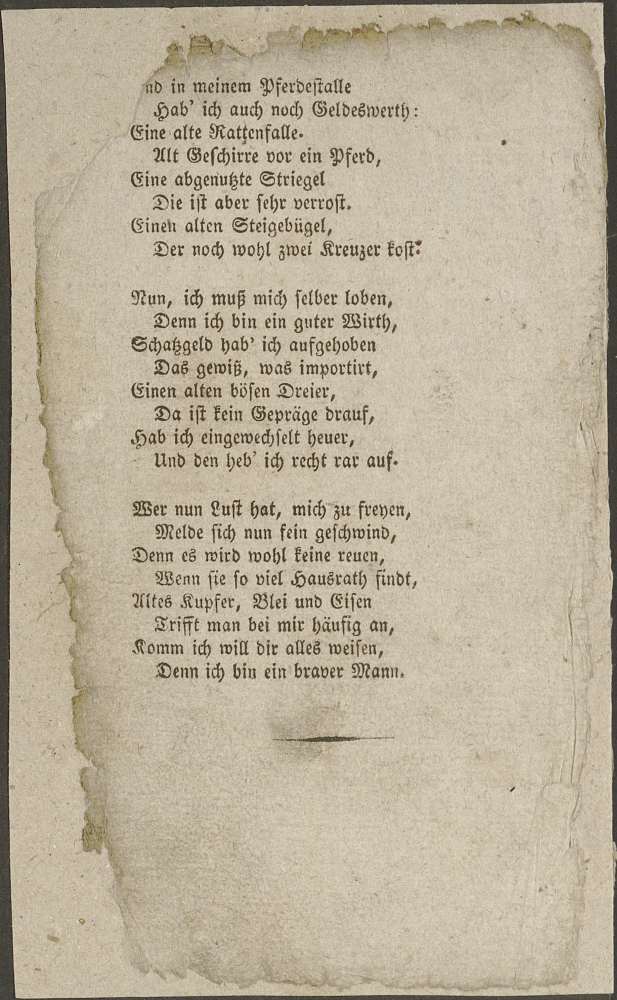 nd in meinem Pferdestalle
Hab' ich auch noch Geldeswerth:
Eine alte Rattenfalle.
Alt Geschirre vor ein Pferd,
Eine abgenutzte Striegel
Die ist aber sehr verrost.
Einen alten Steigebügel,
Der noch wohl zwei Kreuzer kost.
Nun, ich muß mich selber loben,
Denn ich bin ein guter Wirth,
Schatzgeld hab' ich aufgehoben
Das gewiß, was importirt,
Einen alten bösen Dreier,
Da ist kein Gepräge drauf,
Hab ich eingewechselt heuer,
Und den heb' ich recht rar auf.
Wer nun Lust hat, mich zu freyen,
Melde sich nun fein geschwind,
Denn es wird wohl keine reuen,
Wenn sie so viel Hausrath findt,
Altes Kupfer, Blei und Eisen
Trifft man bei mir häufig an,
Komm ich will dir alles weisen,
Denn ich bin ein braver Mann.